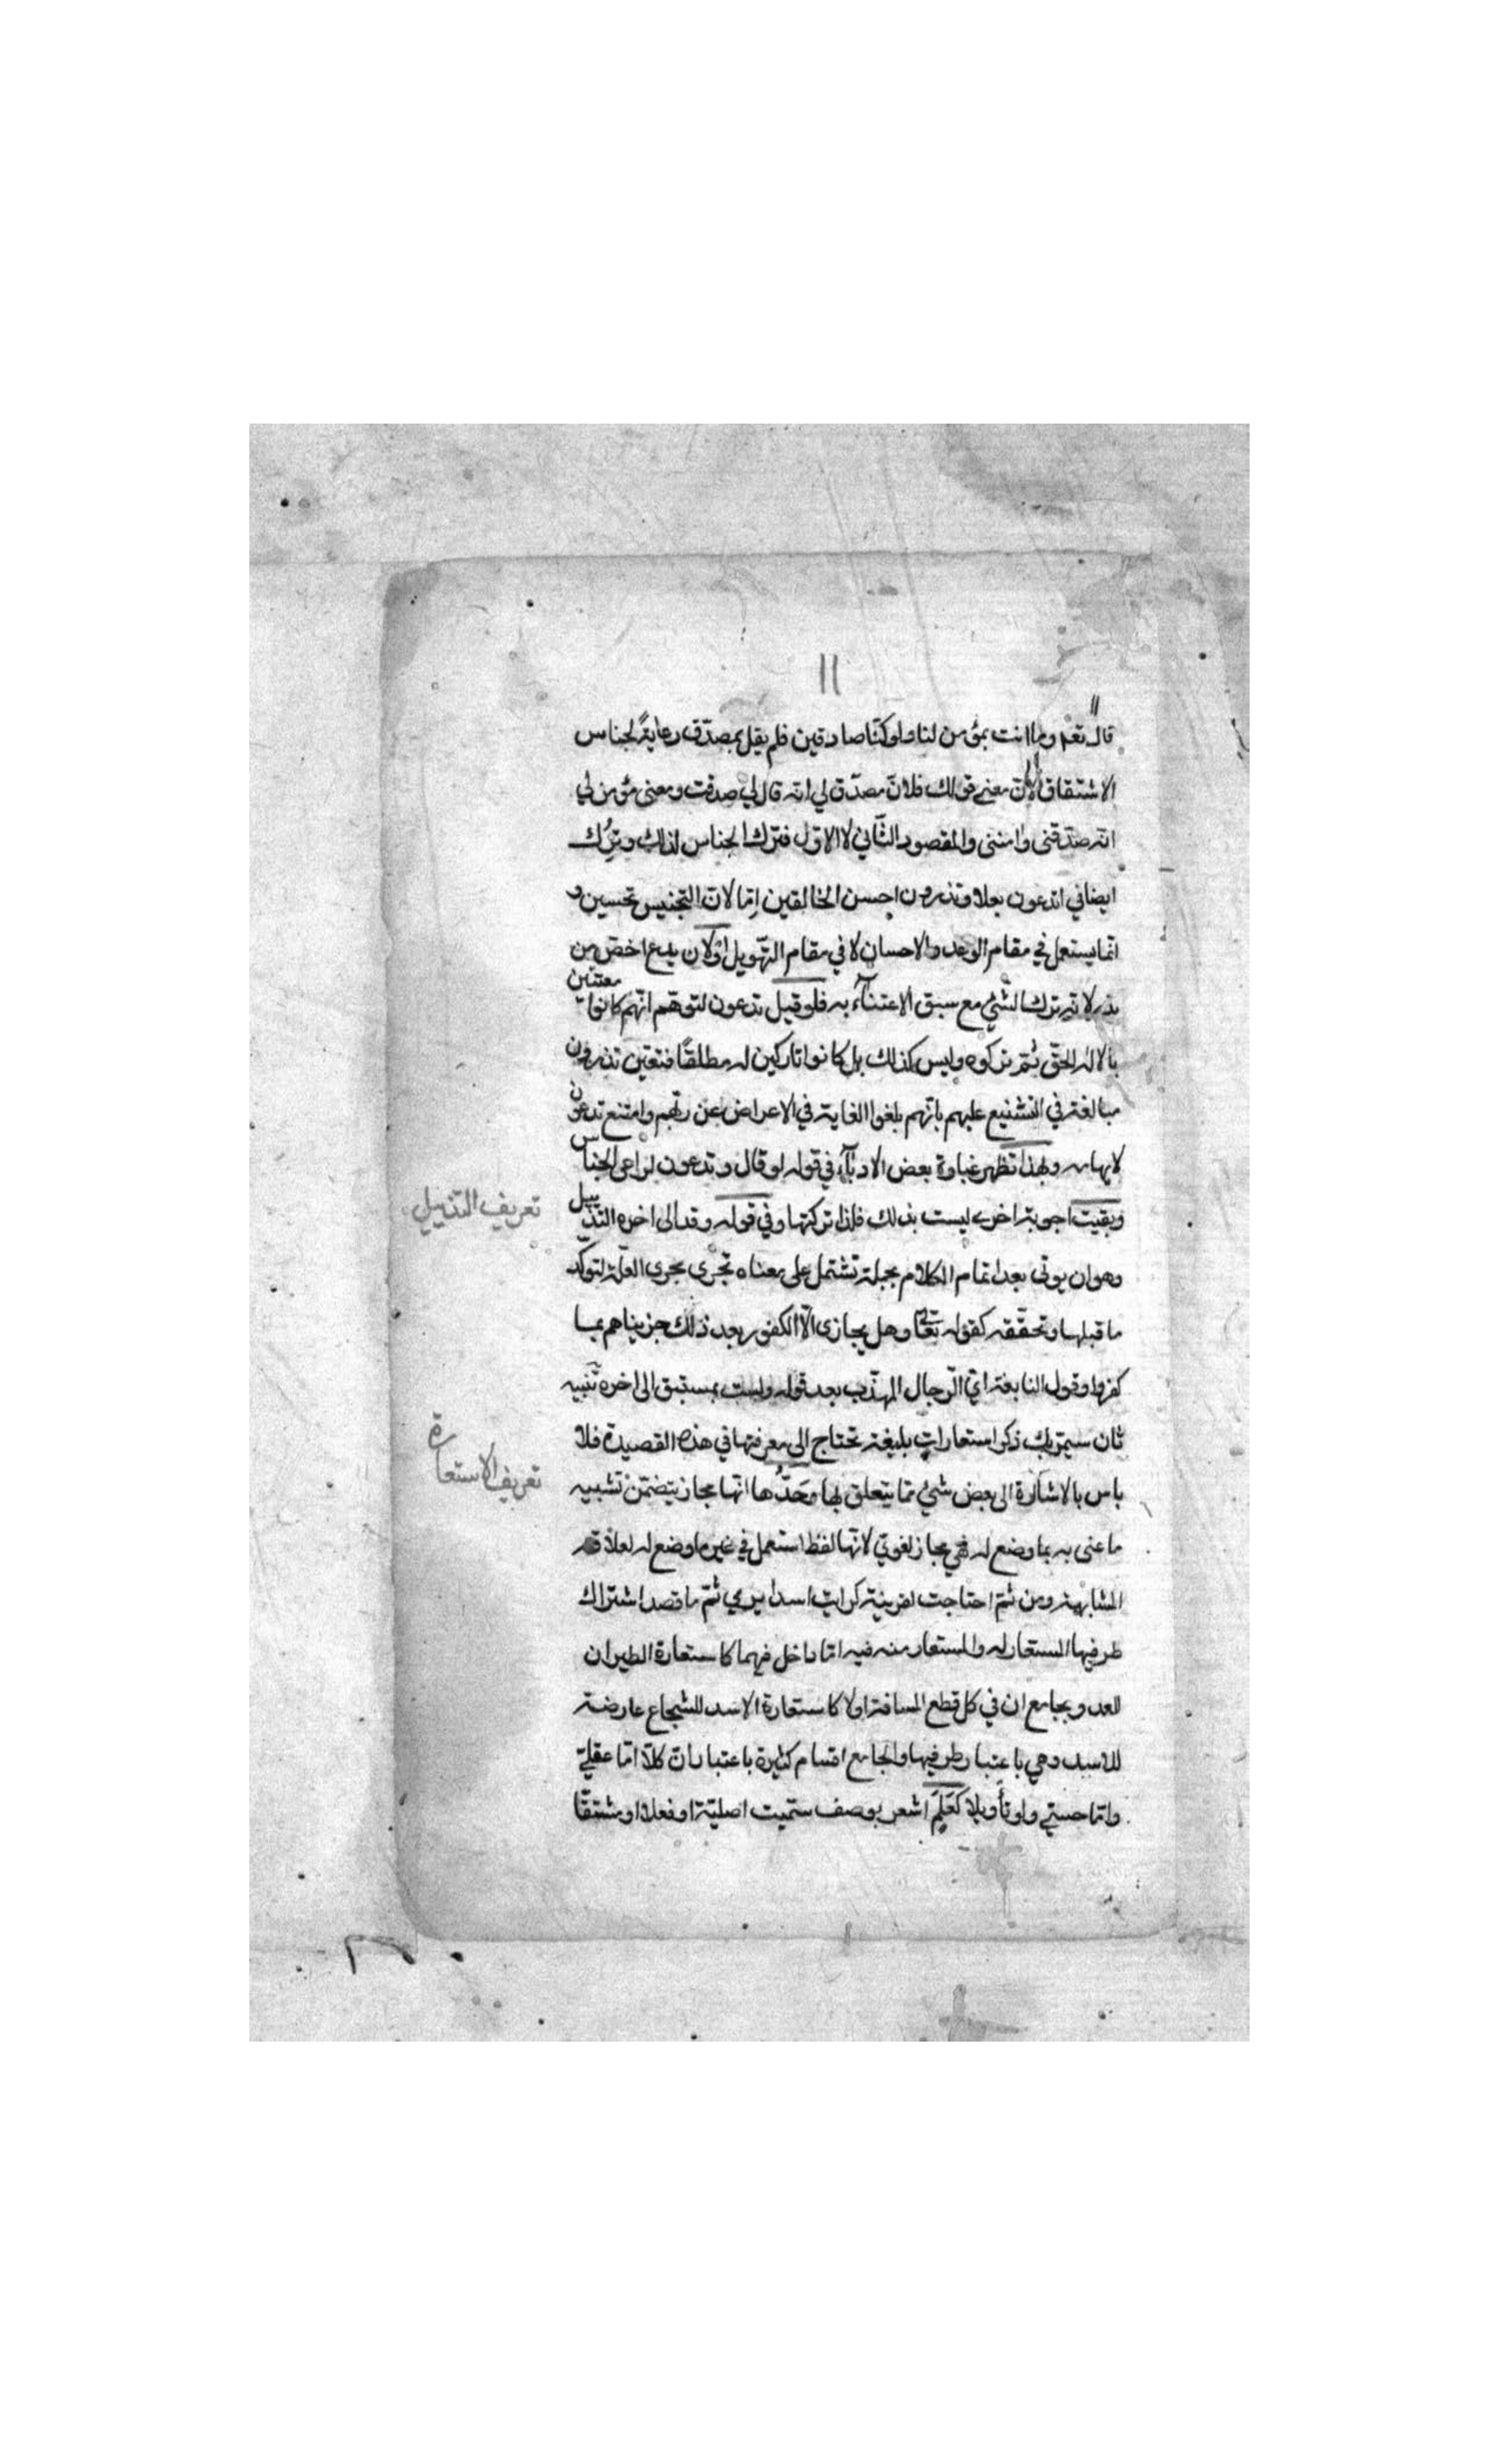 ١١
قال تعم وما انت بمؤمن لنا ولو كنّا صادقين فلم يقل بمصدّق رعايةً لجناس
الاشتقاق لانّ معنى قولك فلانّ مصدّق لي انه قال لي صدقت ومعنى مؤمن لي
انه صدّقنى وامننى والمقصود الثّاني لا الاوّل فترك الجناس لذلك وتُرك
ايضا في اتدعون بعلا وتذرون احسن الخالقين اِمّا لانّ التجنيس تحسين و
انّما يستعمل في مقام الوعد والاحسان لا في مقام التّهويل اَوْلانّ يدع اخصّ من
يذر لانه ترك الشّيْ مع سبق الاعتناآء به فلو قيل تدعون لتوهّم انّهم كانوا معتنين
بالالٰه الحقّ ثمّ تركوه وليس كذلك بل كانوا تاركين له مطلقًا فتعيّن تذرون
مبالغة في التشنيع عليهم بانّهم بلغوا الغاية في الاعراض عن ربّهم وامتنع تدعون
لايهامه وبهذا تظهر غباوة بعض الادبآء في قوله لو قال وتدعون لراعى الجناس
وبقيت اجوبة اخرى ليست بذلك فلذا تركتها وفي قوله وقد الى اخره التذييل
وهو ان يوتى بعد اتمام الكلام بجملة تشتمل على معناه تجرى مجرى العلّة لتوكّد
ما قبلها وتحقّقه كقوله تعالى وهل يجازى الّا الكفور بعد ذلك جزيناهم بما
كفروا وقول النابغة ايّ الرّجال المهذّب بعد قوله ولست بمستبق الى اخره تنبيه
ثان سيمرّ بك ذكر استعاراتٍ بليغة تحتاج الى معرفتها في هذه القصيدة فلا
باس بالاشارة الى بعض شيْ ممّا يتعلق بها وحَدُّها انّها مجاز يتضمّن تشبيه
ما عنى به بما وضع له فهي مجاز لغويّ لانّها لفظ استعمل في غير ما وضع له لعلاقة
المشابهة ومن ثمّ احتاجت لقرينة كرايت اسدا يرمي ثمّ ما قصد اشتراك
طرفيها المستعار له والمستعار منه فيه امّا داخل فيهما كاستعارة الطيران
للعدو بجامع ان في كل قطع المسافة اولا كاستعارة الاسد للشجاع عارضة
للاسد وهي باعتبار طرفيها والجامع اقسام كثيرة باعتبار انّ كلّا امّا عقليّ
وامّا حسّي ولو تأويلا كَعَلَمٍ اشعر بوصف سمّيت اصليّة او فعلا او مشتقّا
تعريف التذييل
تعريف الاستعارة